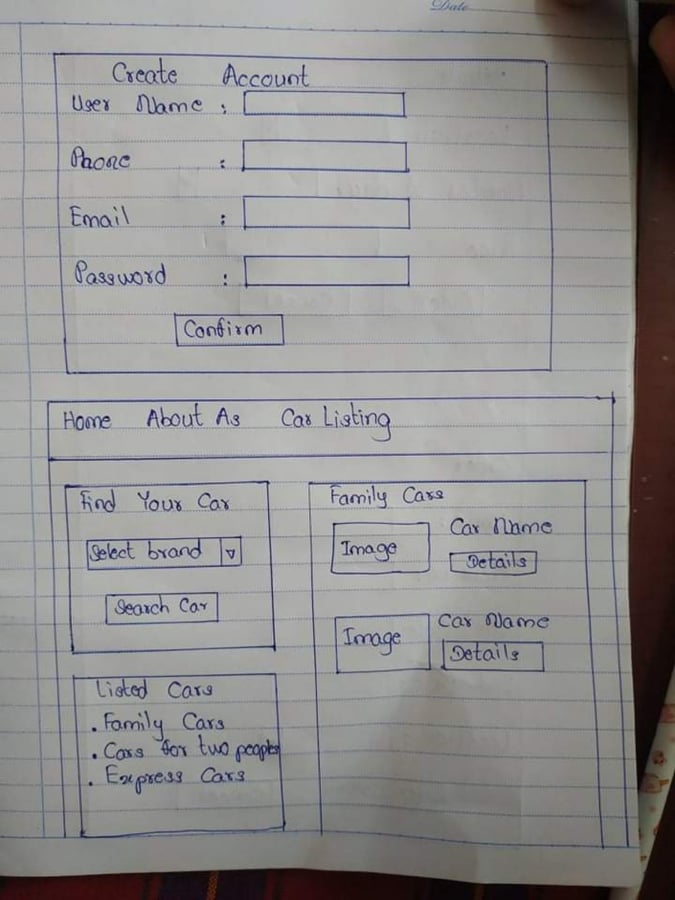 Date
Create Account
User Name :
Phone :
Email :
Password :
Confirm
Home About As Car Listing
Find Your Car
Select brand
Search Car
Listed Cars
. Family Cars
. Cars for two people
. Express Cars
Family Cars
Image
Car Name
Details
Image
Car Name
Details